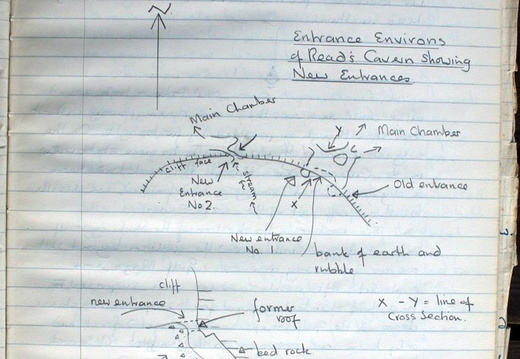 N
Entrance Environs
of Read's Cavern showing
New Entrances
Main Chamber
Y
Main Chamber
cliff face
New
Entrance
No 2.
stream
Old entrance
X
New entrance
No. 1
bank of earth and
rubble
cliff
new entrance
former
roof
X - Y = line of
Cross Section.
bed rock